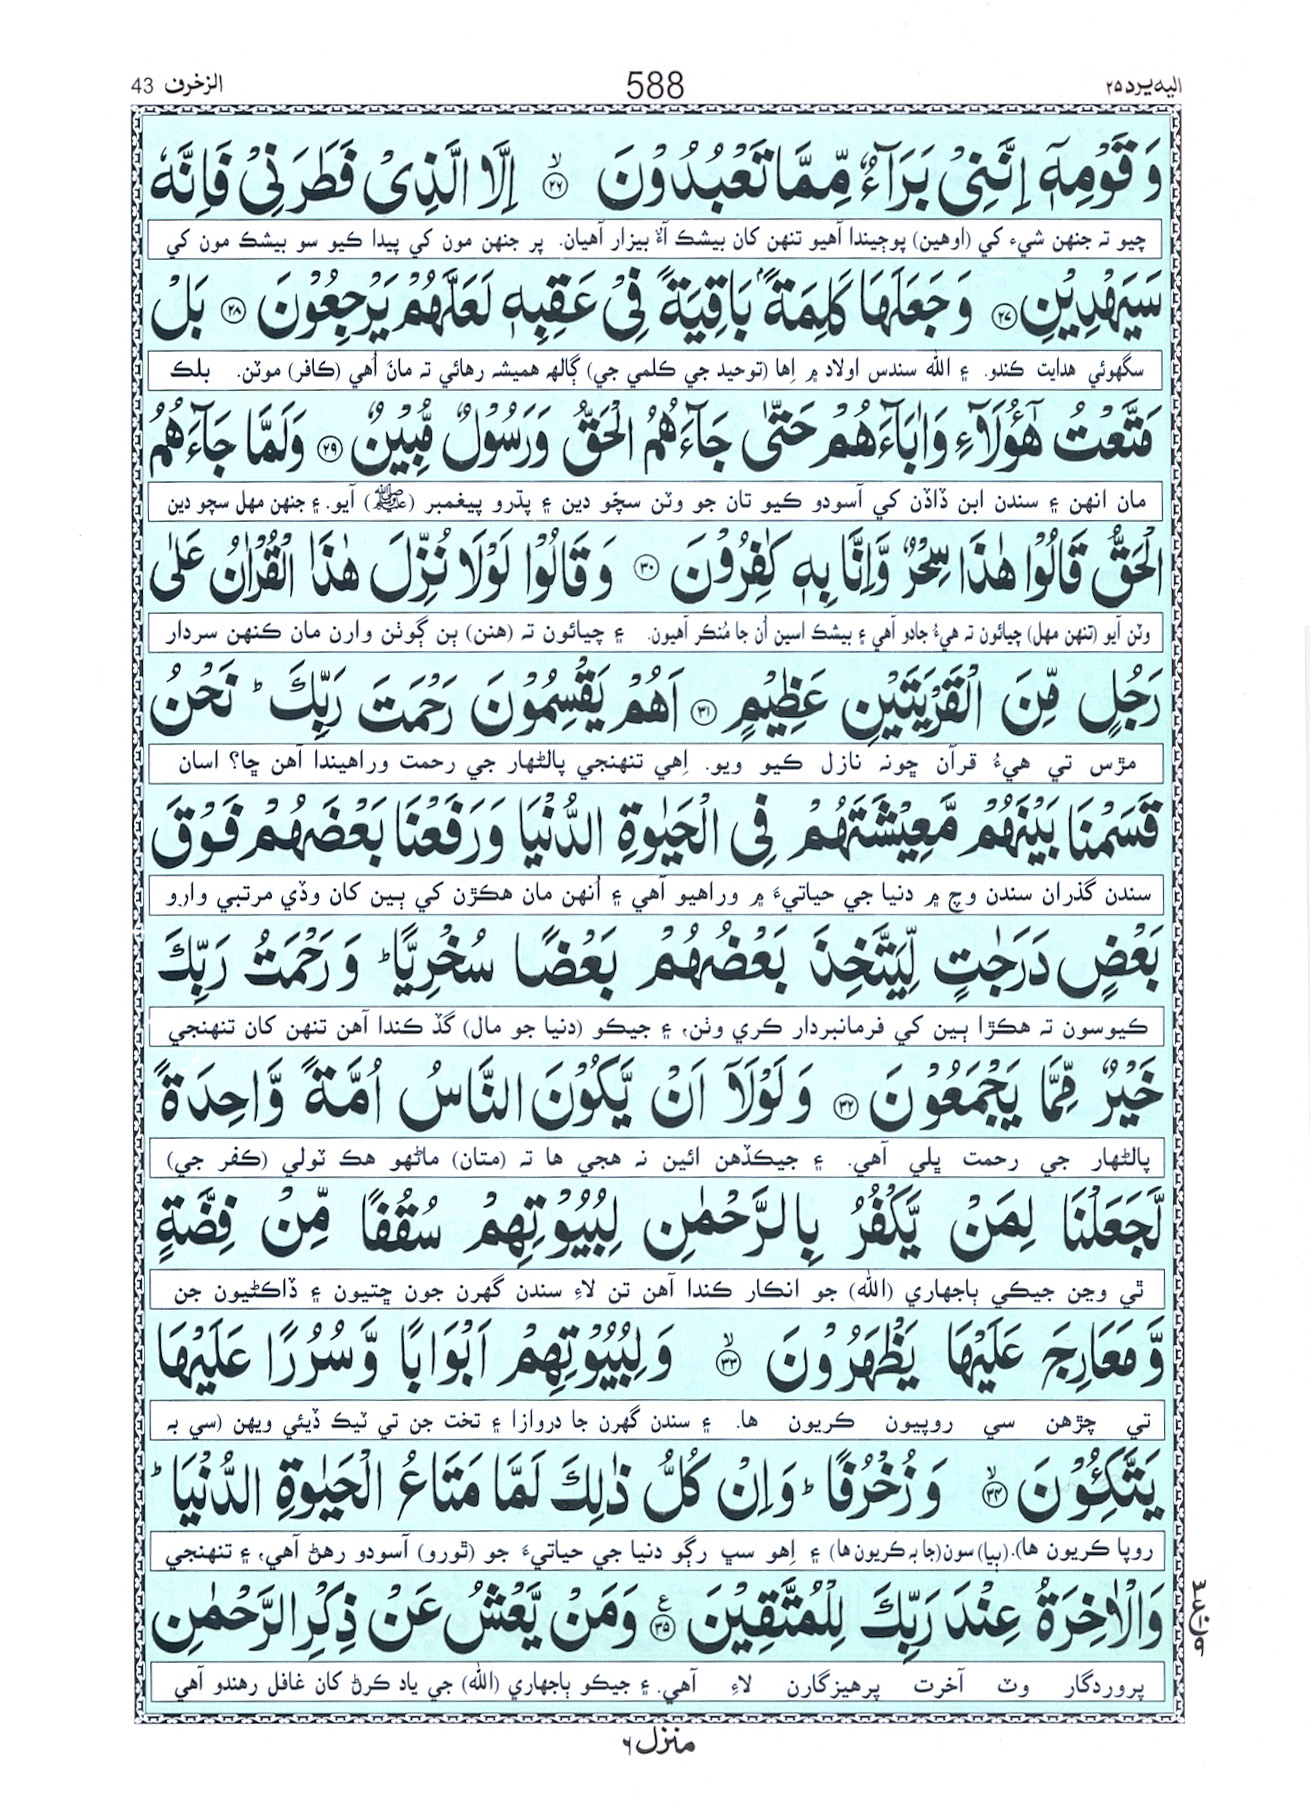 اليه يرد ٢٥
588
الزخرف 43
وَ قَوْمِهٖۤ اِنَّنِيْ بَرَآءٌ مِّمَّا تَعْبُدُوْنَ ۙ۝۲۶ اِلَّا الَّذِيْ فَطَرَنِيْ فَاِنَّهٗ
چيو تہ جنهن شيءِ کي (اوهين) پوڄيندا آهيو تنهن کان بيشڪ آءٌ بيزار آهيان. پر جنهن مون کي پيدا ڪيو سو بيشڪ مون کي
سَيَهْدِيْنِ ۝۲۷ وَ جَعَلَهَا كَلِمَةًۢ بَاقِيَةً فِيْ عَقِبِهٖ لَعَلَّهُمْ يَرْجِعُوْنَ ۝۲۸ بَلْ
سگهوئي هدايت ڪندو. ۽ الله سندس اولاد ۾ اِها (توحيد جي ڪلمي جي) ڳالھ هميشہ رهائي تہ مانَ اُهي (ڪافر) موٽن. بلڪ
مَتَّعْتُ هٰۤؤُلَآءِ وَ اٰبَآءَهُمْ حَتّٰى جَآءَهُمُ الْحَقُّ وَ رَسُوْلٌ مُّبِيْنٌ ۝۲۹ وَ لَمَّا جَآءَهُمُ
مان انهن ۽ سندن ابن ڏاڏن کي آسودو ڪيو تان جو وٽن سچو دين ۽ پڌرو پيغمبر (ﷺ) آيو. ۽ جنهن مهل سچو دين
الْحَقُّ قَالُوْا هٰذَا سِحْرٌ وَّ اِنَّا بِهٖ كٰفِرُوْنَ ۝۳۰ وَ قَالُوْا لَوْ لَا نُزِّلَ هٰذَا الْقُرْاٰنُ عَلٰى
وٽن آيو (تنهن مهل) چيائون تہ هيءُ جادو آهي ۽ بيشڪ اسين اُن جا مُنڪر آهيون. ۽ چيائون تہ (هنن) ٻن ڳوٺن وارن مان ڪنهن سردار
رَجُلٍ مِّنَ الْقَرْيَتَيْنِ عَظِيْمٍ ۝۳۱ اَهُمْ يَقْسِمُوْنَ رَحْمَتَ رَبِّكَ ؕ نَحْنُ
مڙس تي هيءُ قرآن ڇونہ نازل ڪيو ويو. اِهي تنهنجي پالڻهار جي رحمت وراهيندا آهن ڇا؟ اسان
قَسَمْنَا بَيْنَهُمْ مَّعِيْشَتَهُمْ فِي الْحَيٰوةِ الدُّنْيَا وَ رَفَعْنَا بَعْضَهُمْ فَوْقَ
سندن گذران سندن وچ ۾ دنيا جي حياتيءَ ۾ وراهيو آهي ۽ اُنهن مان هڪڙن کي ٻين کان وڏي مرتبي وارو
بَعْضٍ دَرَجٰتٍ لِّيَتَّخِذَ بَعْضُهُمْ بَعْضًا سُخْرِيًّا ؕ وَ رَحْمَتُ رَبِّكَ
ڪيوسون تہ هڪڙا ٻين کي فرمانبردار ڪري وٺن، ۽ جيڪو (دنيا جو مال) گڏ ڪندا آهن تنهن کان تنهنجي
خَيْرٌ مِّمَّا يَجْمَعُوْنَ ۝۳۲ وَ لَوْ لَاۤ اَنْ يَّكُوْنَ النَّاسُ اُمَّةً وَّاحِدَةً
پالڻهار جي رحمت ڀلي آهي. ۽ جيڪڏهن ائين نہ هجي ها تہ (متان) ماڻهو هڪ ٽولي (ڪفر جي)
لَّجَعَلْنَا لِمَنْ يَّكْفُرُ بِالرَّحْمٰنِ لِبُيُوْتِهِمْ سُقُفًا مِّنْ فِضَّةٍ
ٿي وڃن جيڪي ٻاجهاري (الله) جو انڪار ڪندا آهن تن لاءِ سندن گهرن جون ڇتيون ۽ ڏاڪڻيون جن
وَّ مَعَارِجَ عَلَيْهَا يَظْهَرُوْنَ ۙ۝۳۳ وَ لِبُيُوْتِهِمْ اَبْوَابًا وَّ سُرُرًا عَلَيْهَا
تي چڙهن سي روپيون ڪريون ها. ۽ سندن گهرن جا دروازا ۽ تخت جن تي ٽيڪ ڏيئي ويهن (سي بہ
يَتَّكِـُٔوْنَ ۙ۝۳۴ وَ زُخْرُفًا ؕ وَ اِنْ كُلُّ ذٰلِكَ لَمَّا مَتَاعُ الْحَيٰوةِ الدُّنْيَا ؕ
روپا ڪريون ها). (ٻيا) سون (جا بہ ڪريون ها) ۽ اِهو سڀ رڳو دنيا جي حياتيءَ جو (ٿورو) آسودو رهڻ آهي، ۽ تنهنجي
وَ الْاٰخِرَةُ عِنْدَ رَبِّكَ لِلْمُتَّقِيْنَ ۝۳۵ ع وَ مَنْ يَّعْشُ عَنْ ذِكْرِ الرَّحْمٰنِ
پروردگار وٽ آخرت پرهيزگارن لاءِ آهي. ۽ جيڪو ٻاجهاري (الله) جي ياد ڪرڻ کان غافل رهندو آهي
منزل ٦